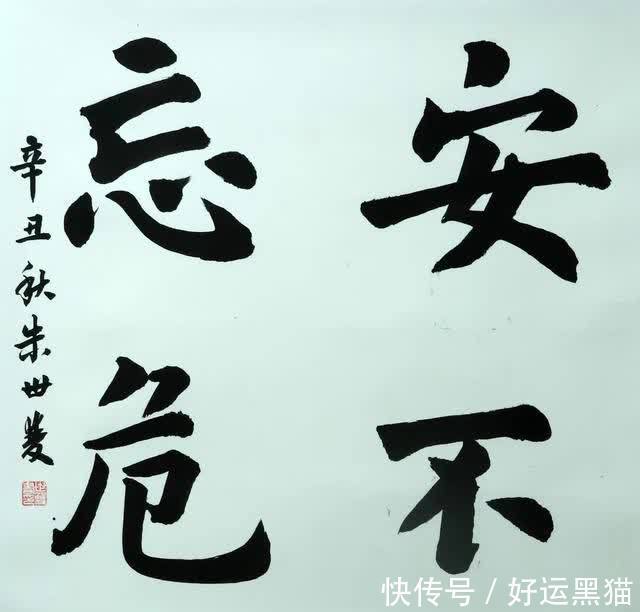 安不
忘危
辛丑秋朱世菱
快传号/好运黑猫